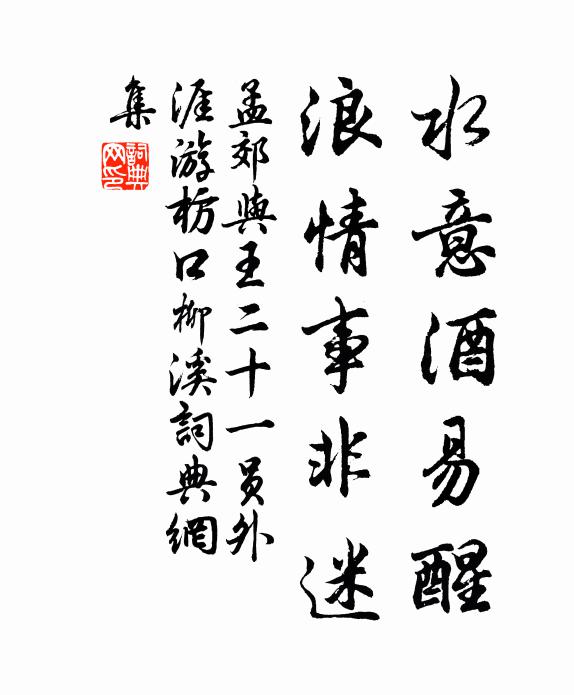 水意酒易醒
浪情事非迷
孟郊與王二十一员外
涯游枋口柳溪詞典網
集
詞典網印